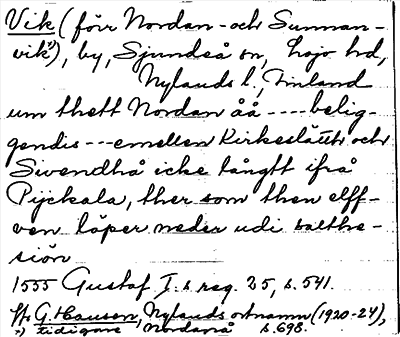 Vik (förr Nordan- och Sunnan-
vik¹), by, Sjundeå sn, Lojo hd,
Nylands l., Finland
um thett Nordan åå ---- belig-
gendis --- emellen Kirkeslätt och
Sivendhå icke långtt ifrå
Pijckala, ther som then elff-
ven löper neder udi salthe-
siön
1555 Gustaf I:s reg. 25, s. 541.
Jfr G. Hausen, Nylands ortnamn (1920-24),
¹) tidigare Nordanå s. 698.